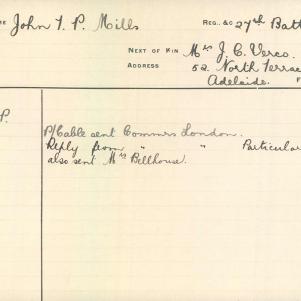 ME John T. P. Mills REG. &C 27th Batt
NEXT OF KIN Mrs J. C. Verco.
ADDRESS 52 North Terrac
Adelaide. F
P.
P/Cable sent Commrs London.
Reply from " " Particular
also sent Mrs Bellhouse.